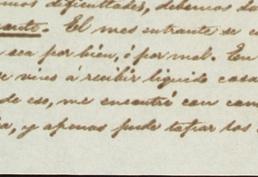 mos dificultades, debemos de
uanto. El mes entrante se c
sea por bien, ó por mal. En
e vine á recibir liquido casa
de eso, me encontré con cam
a, y apenas pude tapar los